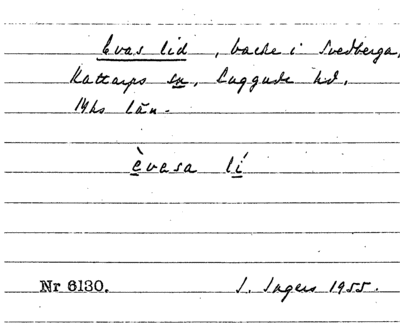 Evas lid, backe i Svedberga,
Kattarps sn, Luggude hd,
Mhs län.
èvasa lí
Nr 6130. J. Ingers 1955.